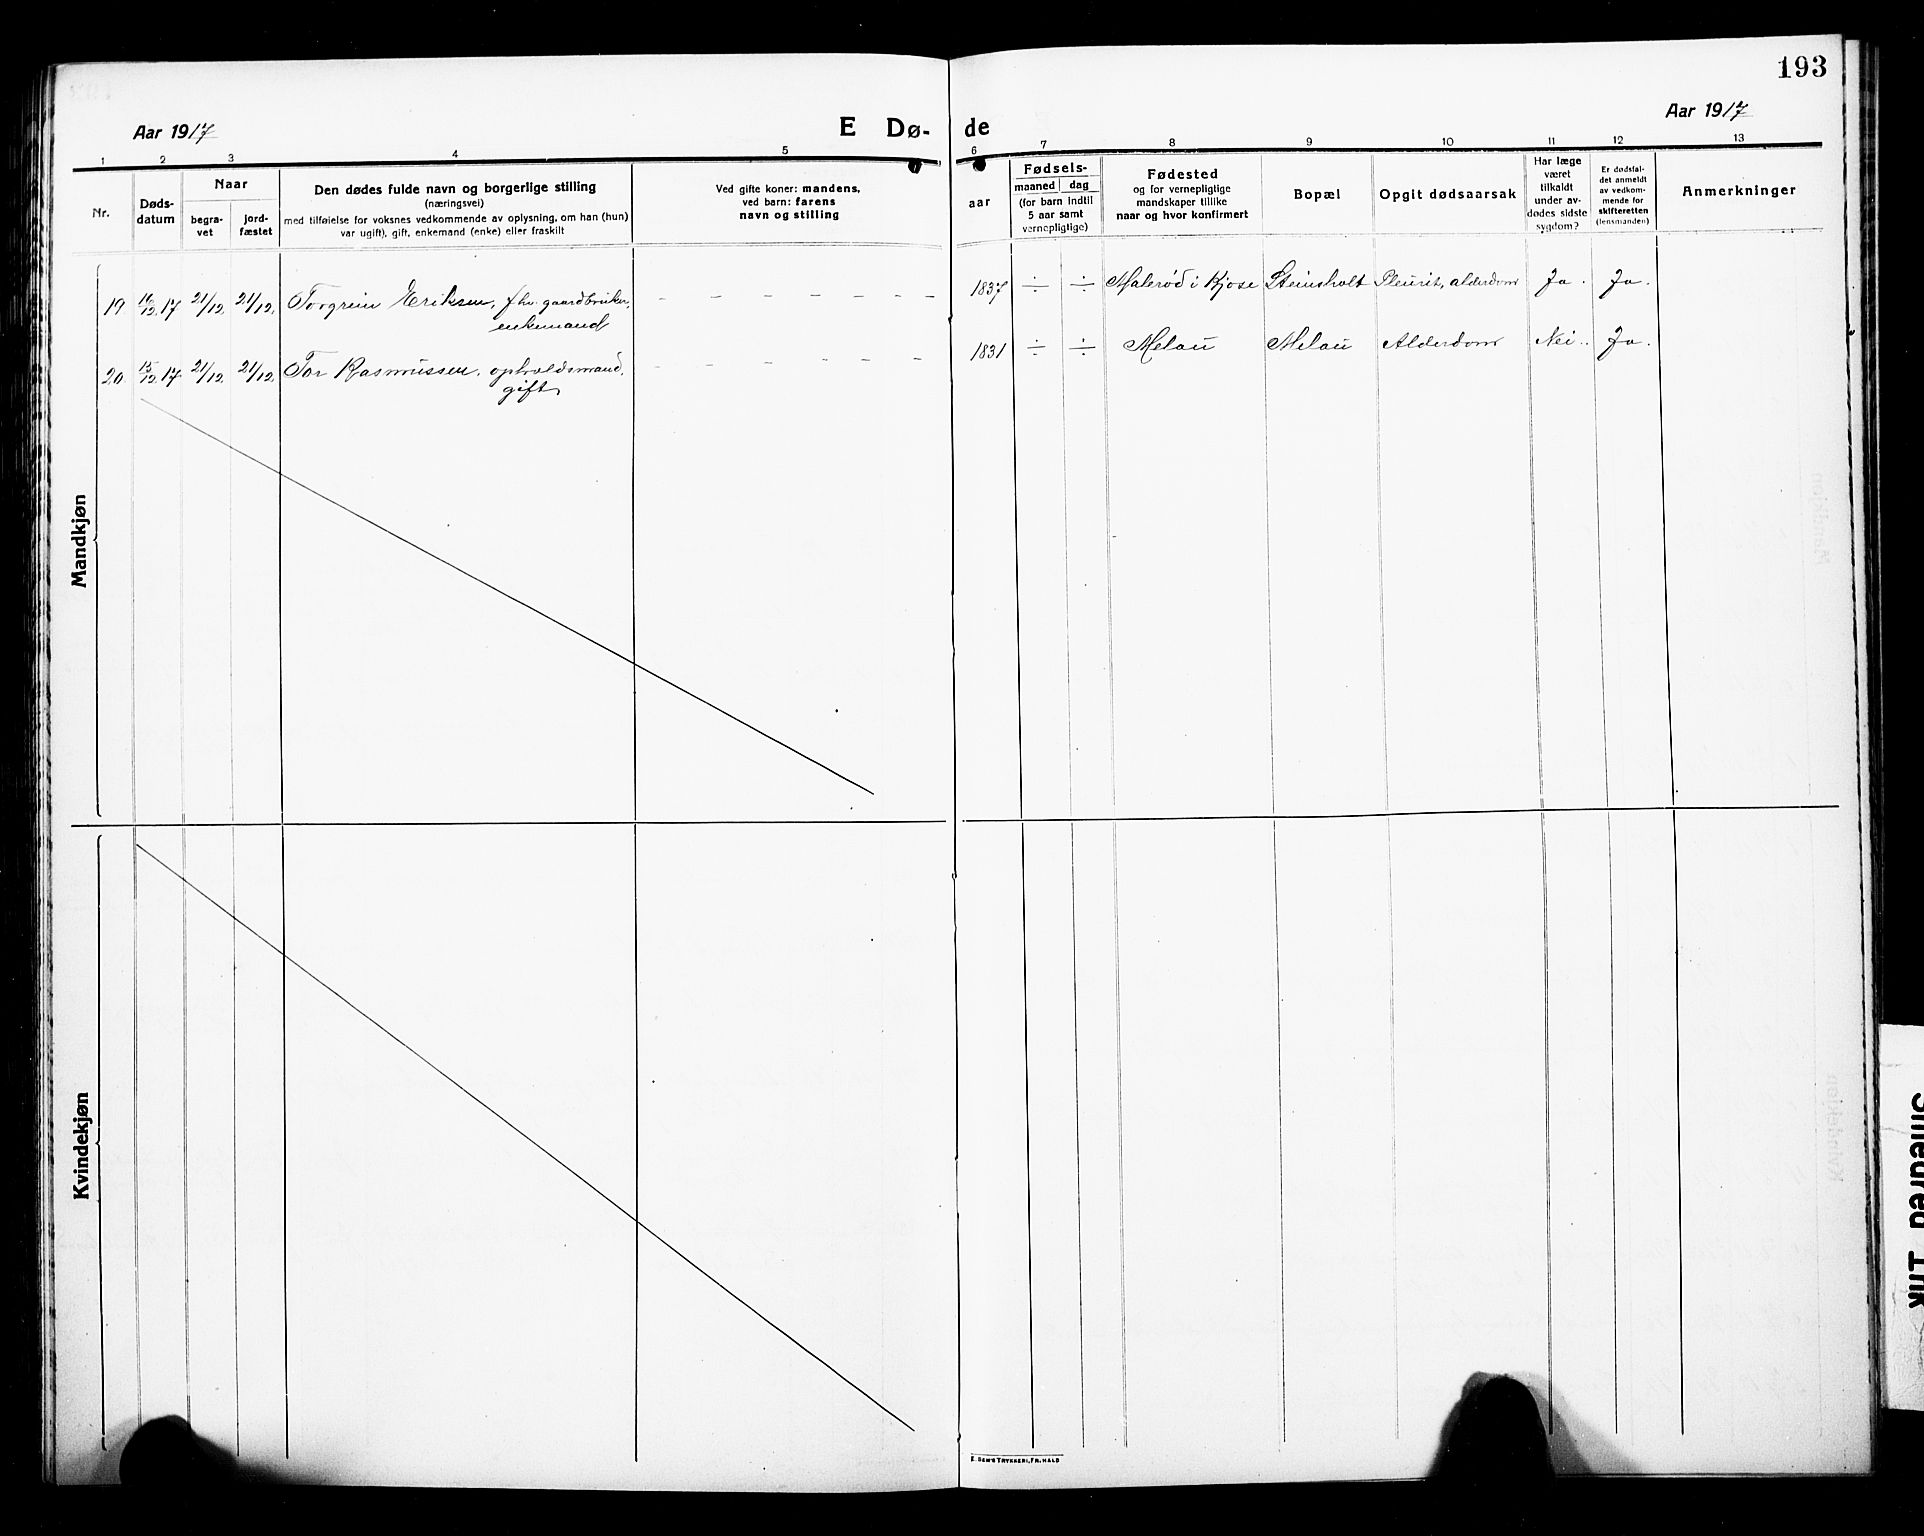 193
Aar 1917
E Dø-
de
Aar 1917
1 2 3 4 5 6 7 8 9 10 11 12 13
Nr.
Døds-
datum
Naar
begra-
vet
jord-
fæstet
Den dødes fulde navn og borgerlige stilling
(næringsvei)
med tilføielse for voksnes vedkommende av oplysning, om han (hun)
var ugift), gift, enkemand (enke) eller fraskilt
Ved gifte koner: mandens,
ved barn: farens
navn og stilling
aar
Fødsels-
maaned dag
(for barn indtil
5 aar samt
vernepligtige)
Fødested
og for vernepligtige
mandskaper tillike
naar og hvor konfirmert
Bopæl
Opgit dødsaarsak
Har læge
været
tilkaldt
under av-
dødes sidste
sygdom?
Er dødsfal-
det anmeldt
av vedkom-
mende for
skifteretten
(lensmanden)
Anmerkninger
Mandkjøn
19 16/12 17 21/12 21/12 Torgrim Eriksen, fhv. gaardbruker, - - - - - - - 1837 ÷ ÷ Malerød i Kjose Steinsholt Pleurit, alderdom Ja. Ja.
enkemand
20 15/12 17 21/12 21/12 Tor Rasmussen, opholdsmand, - - - - - - 1831 ÷ ÷ Melau Melau Alderdom Nei. Ja.
gift
Kvindekjøn
E. SEM'S TRYKKERI, FR. HALD